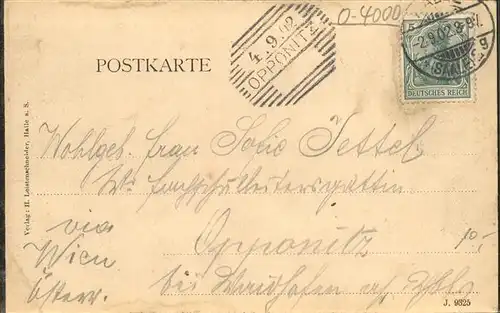 O-4000
4.9.02
OPPONITZ
5
-2.9.02.8-9V.
(SAALE)
g
DEUTSCHES REICH
POSTKARTE
Verlag: H. Lautenschneider, Halle a. S.
Wohlgeb. Frau Sofie Tettel
Fachschulleitersgattin
via
Wien
Österr.
Opponitz
bei Waidhofen a/Ybbs
10,-
J. 9325